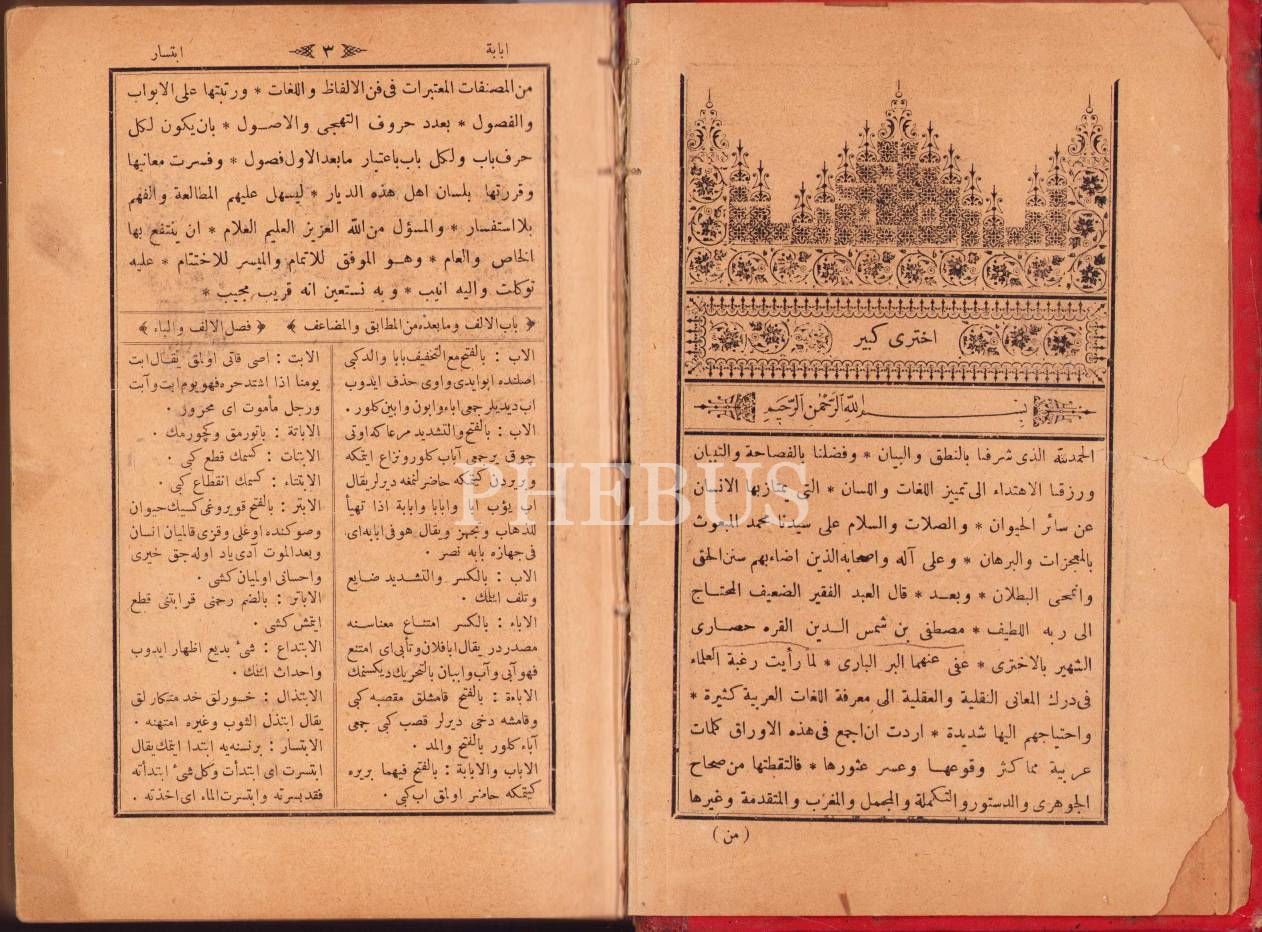 اخترى كبير
بسم الله الرحمن الرحيم
الحمدلله الذى شرفنا بالنطق والبيان * وفضلنا بالفصاحة والتبيان
ورزقنا الاهتداء الى تمييز اللغات واللسان * التى يمتازبها الانسان
عن سائر الحيوان * والصلات والسلام على سيدنا محمد المبعوث
بالمعجزات والبرهان * وعلى آله واصحابه الذين اضاءبهم سنن الحق
وانمحى البطلان * وبعد * قال العبد الفقير الضعيف المحتاج
الى ربه اللطيف * مصطفى بن شمس الدين القره حصارى
الشهير بالاخترى * عفى عنهما البر البارى * لما رأيت رغبة العلماء
فى درك المعانى النقلية والعقلية الى معرفة اللغات العربية كثيرة *
واحتياجهم اليها شديدة * اردت ان اجمع فى هذه الاوراق كلمات
عربية مما كثر وقوعها وعسر عثورها * فالتقطتها من صحاح
الجوهرى والدستور والتكملة والمجمل والمغرب والمتقدمة وغيرها
( من )
ابابة ٣ ابتسار
من المصنفات المعتبرات فى فن الالفاظ واللغات * ورتبتها على الابواب
والفصول * بعدد حروف التهجى والاصول * بان يكون لكل
حرف باب ولكل باب باعتبار مابعد الاول فصول * وفسرت معانيها
وقررتها بلسان اهل هذه الديار * ليسهل عليهم المطالعة والفهم
بلا استفسار * والمسؤل من الله العزيز العليم العلام * ان ينتفع بها
الخاص والعام * وهو الموفق للاتمام والميسر للاختتام * عليه
توكلت واليه انيب * وبه نستعين انه قريب مجيب *
﴿ باب الالف ومابعده من المطابق والمضاعف ﴾ ﴿ فصل الالف والباء ﴾
الاب : بالفتح مع التخفيف بابا والدكبى
اصلنده ابوايدى واوى حذف ايدوب
اب ديديلر جمعى اباء وابون وابين كلور .
الاب : بالفتح والتشديد مرعاكه اوتى
چوق يرجمعى آباب كلور ونزاع ايتمكه
وبريردن كيتمكه حاضرلنمغه ديرلر يقال
اب يؤب ابا وابابا وابابة اذا تهيأ
للذهاب وتجهز ويقال هو فى ابابه اى
فى جهازه بابه نصر .
الاب : بالكسر والتشديد ضايع
وتلف اتمك .
الاباء : بالكسر امتناع معناسنه
مصدر در يقال ابافلان وتأبى اى امتنع
فهو آبى وآب وابيان بالتحريك ديكسنمك
الاباءة : بالفتح قامشلق مقصبه كبى
وقامشه دخى ديرلر قصب كبى جمعى
آباء كلور بالفتح والمد .
الاباب والابابة : بالفتح فيهما بريره
كيتمكه حاضر اولمق اب كبى
الابت : اصى قاتى اولمق يقال ابت
يومنا اذا اشتد حره فهو يوم ابت وآبت
ورجل مأموت اى محرور .
الاباتة : باتورمق وكچورمك .
الابتات : كسمك قطع كبى .
الابتتاء : كسمك انقطاع كبى .
الابتر : بالفتح قويروغى كسيك حيوان
وصوكنده اوغلى وقزى قالميان انسان
وبعد الموت آدى ياد اوله جق خيرى
واحسانى اولميان كشى .
الاباتر : بالضم رحمنى قرابتنى قطع
ايتمش كشى .
الابتداع : شئ بديع اظهار ايدوب
واحداث اتمك .
الابتذال : خورلق ضد متكارلق
يقال ابتذل الثوب وغيره امتهنه .
الابتسار : برنسنه يه ابتدا ايتمك يقال
ابتسرت اى ابتدأت وكل شئ ابتدأته
فقد بسرته وابتسرت الماء اى اخذته .
PHEBUS